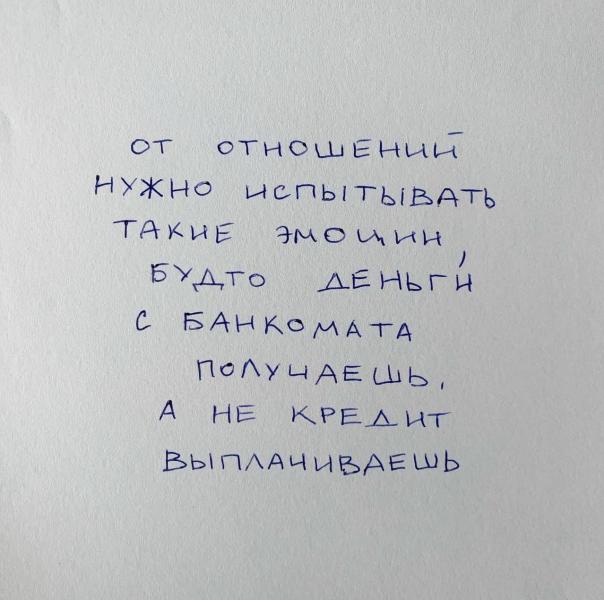 ОТ ОТНОШЕНИЙ
НУЖНО ИСПЫТЫВАТЬ
ТАКИЕ ЭМОЦИИ,
БУДТО ДЕНЬГИ
С БАНКОМАТА
ПОЛУЧАЕШЬ,
А НЕ КРЕДИТ
ВЫПЛАЧИВАЕШЬ